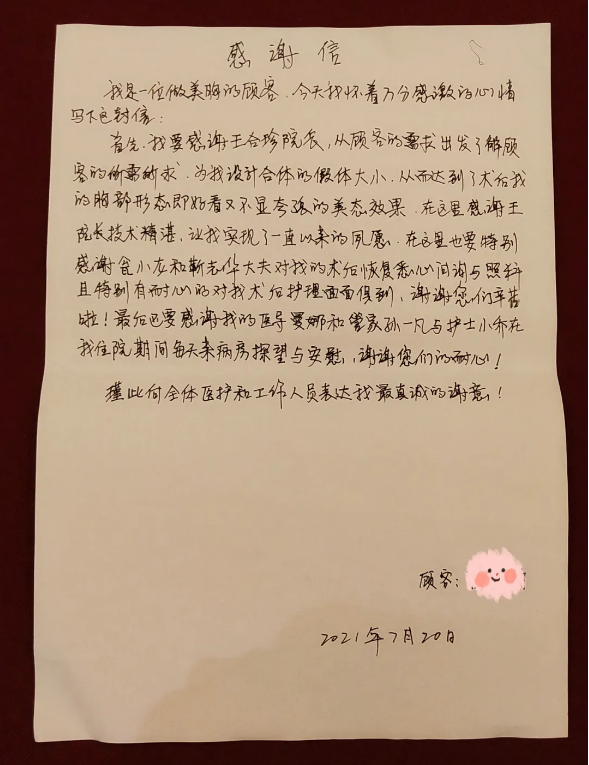 感谢信
我是一位做美胸的顾客.今天我怀着万分感激的心情
写下这封信:
首先.我要感谢王合珍院长,从顾客的需求出发了解顾
客的所需所求.为我设计合体的假体大小.从而达到了术后我
的胸部形态即好看又不显夸张的美态效果.在这里感谢王
院长技术精湛,让我实现了一直以来的夙愿.在这里也要特别
感谢 小龙和靳志华大夫对我的术后恢复悉心问询与照料
且特别有耐心的对我术后护理面面俱到,谢谢您们辛苦
啦!最后也要感谢我的医导曼娜和管家孙一凡与护士小乔在
我住院期间每天来病房探望与安慰,谢谢您们的耐心!
谨此向全体医护和工作人员表达我最真诚的谢意!
顾客:
2021年7月20日